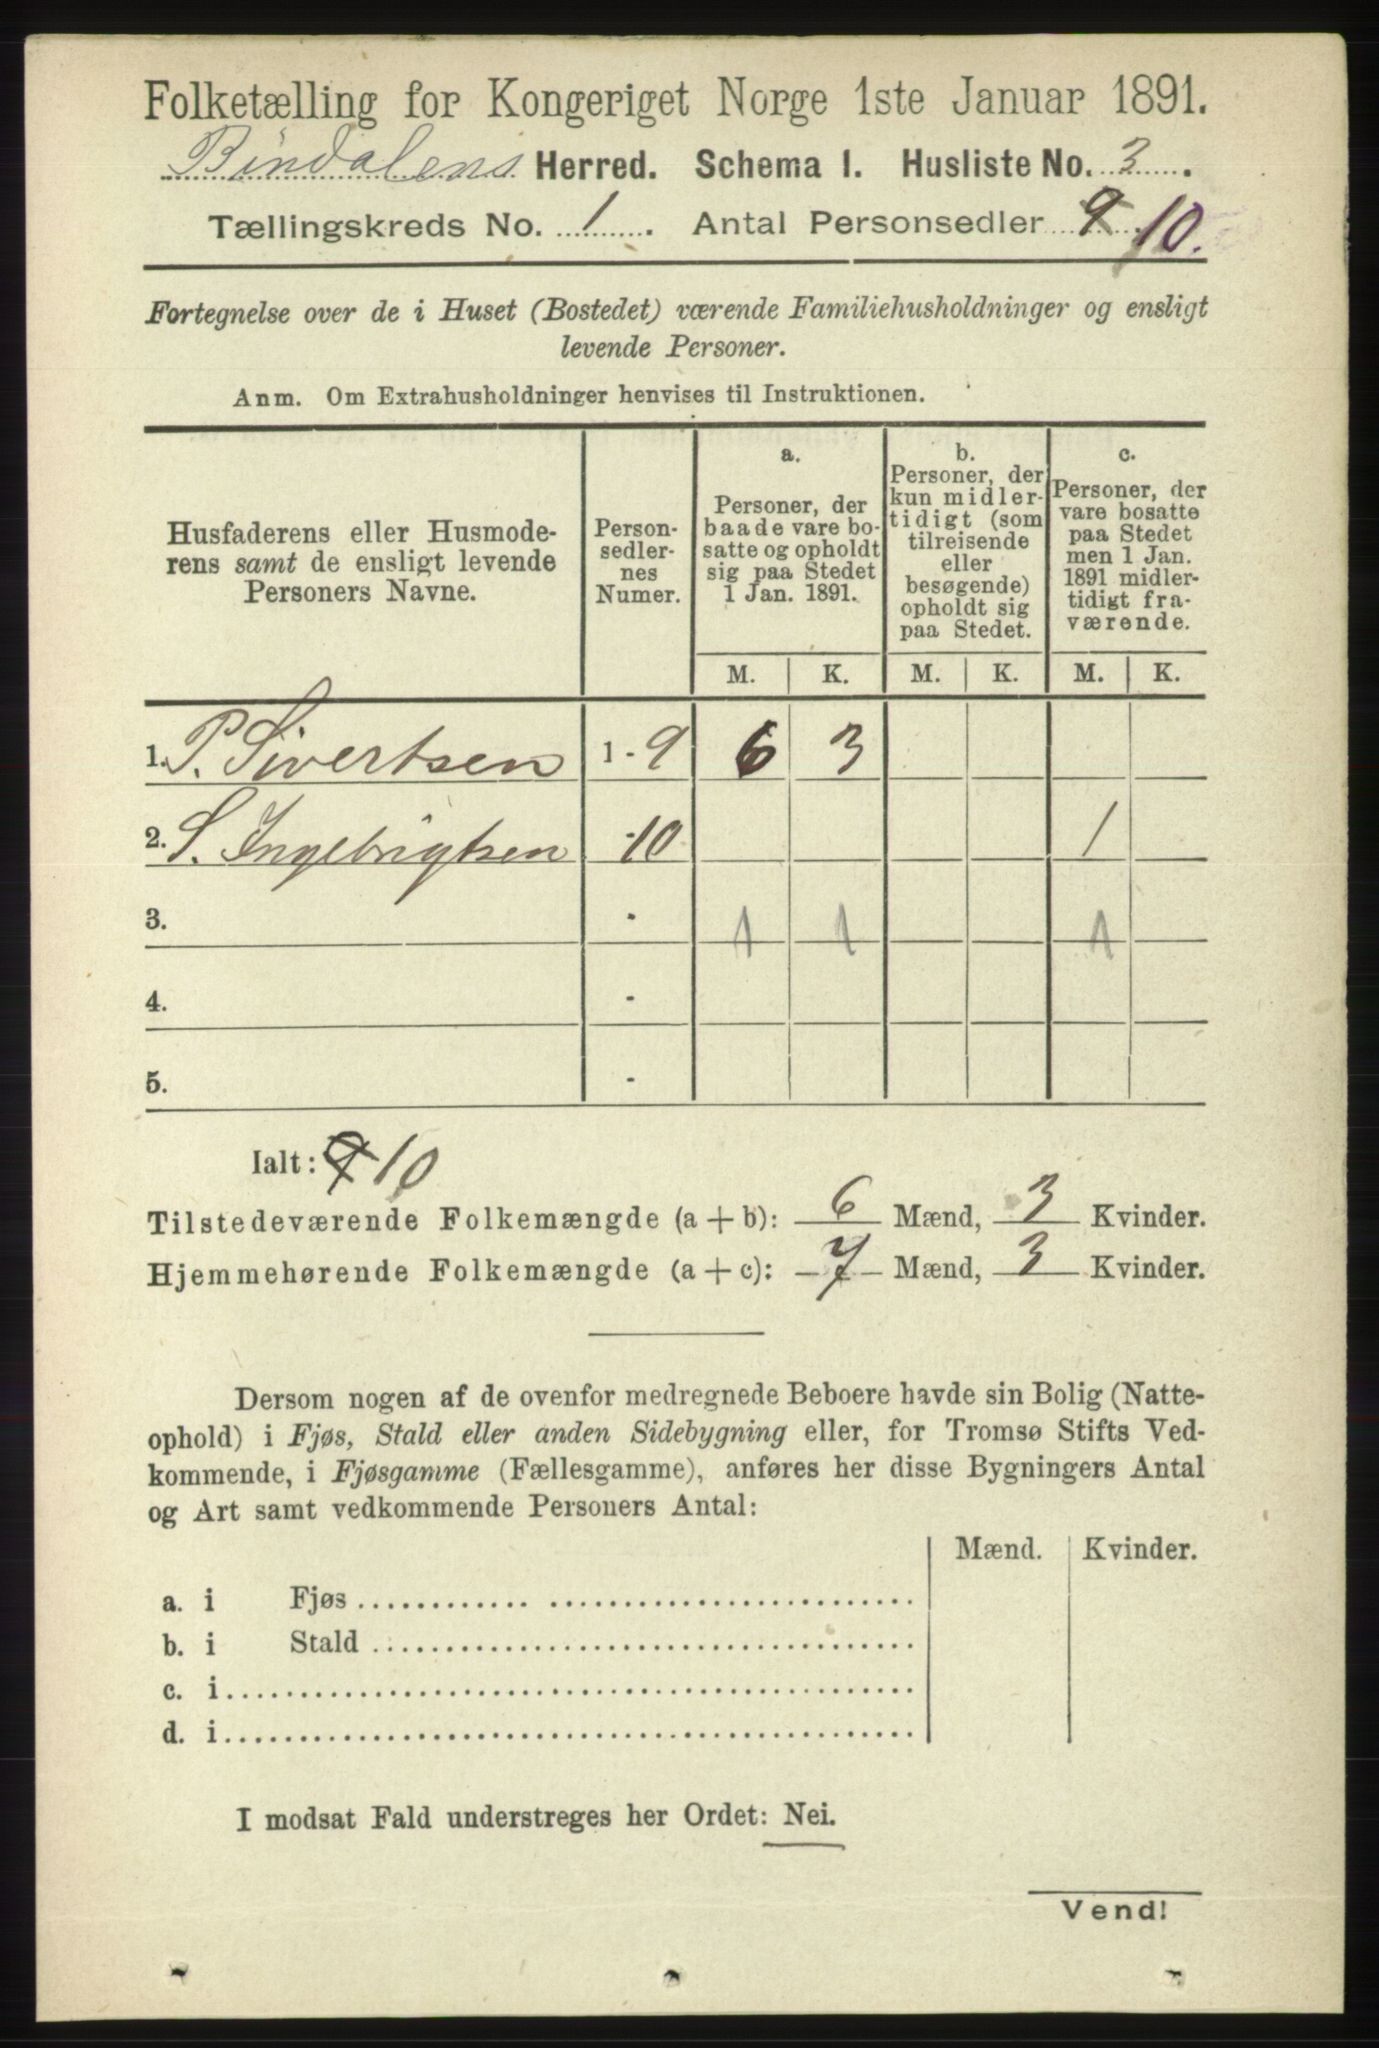 Folketælling for Kongeriget Norge 1ste Januar 1891.
Bindalens Herred. Schema I. Husliste No. 3.
Tællingskreds No. 1. Antal Personsedler 9 10.
Fortegnelse over de i Huset (Bostedet) værende Familiehusholdninger og ensligt
levende Personer.
Anm. Om Extrahusholdninger henvises til Instruktionen.
Husfaderens eller Husmode-
rens samt de ensligt levende
Personers Navne.
Person-
sedler-
nes
Numer.
a.
Personer, der
baade vare bo-
satte og opholdt
sig paa Stedet
1 Jan. 1891.
b.
Personer, der
kun midler-
tidigt (som
tilreisende
eller
besøgende)
opholdt sig
paa Stedet.
c.
Personer, der
vare bosatte
paa Stedet
men 1 Jan.
1891 midler-
tidigt fra-
værende.
M. K. M. K. M. K.
1. P. Sivertsen 1 - 9 6 3
2. S. Ingebrigtsen - 10 1
3. - 1 1 1
4. -
5. -
Ialt: 9 10
Tilstedeværende Folkemængde (a + b): 6 Mænd, 3 Kvinder.
Hjemmehørende Folkemængde (a + c): 7 Mænd, 3 Kvinder.
Dersom nogen af de ovenfor medregnede Beboere havde sin Bolig (Natte-
ophold) i Fjøs, Stald eller anden Sidebygning eller, for Tromsø Stifts Ved-
kommende, i Fjøsgamme (Fællesgamme), anføres her disse Bygningers Antal
og Art samt vedkommende Personers Antal:
Mænd. Kvinder.
a. i Fjøs
b. i Stald
c. i
d. i
I modsat Fald understreges her Ordet: Nei.
Vend!